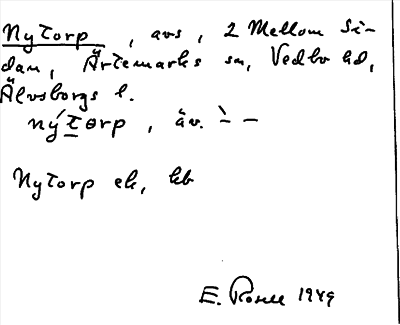 Nytorp, avs, 2 Mellom Si-
dan, Ärtemarks sn, Vedbo hd,
Älvsborgs l.
nýtorp, äv. ` –
Nytorp ek, kb
E. Rosell 1949